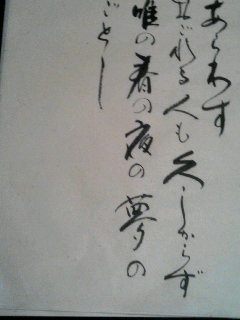 あらわす
おごれる人も久しからず
唯の春の夜の夢の
ごとし